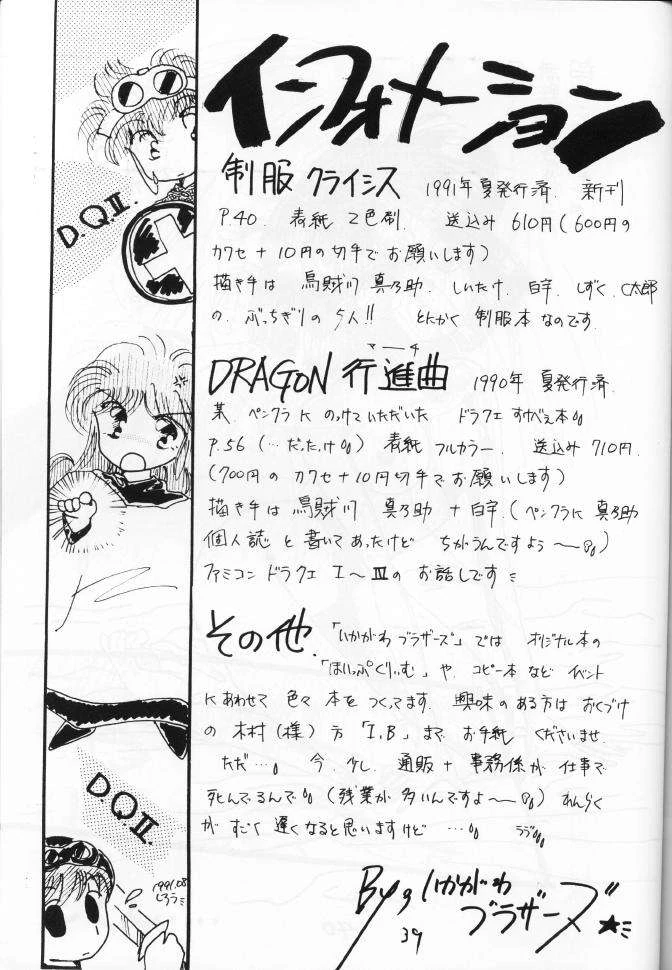 インフォメーション
制服 クライシス 1991年 夏発行済. 新刊
P.40. 表紙 2色刷. 送込み 610円(600円の
カワセ + 10円の切手で お願いします)
描き手は 烏賊川 真乃助. しいたけ. 白宇. しずく. C太郎
の. ぶっちぎりの 5人!! とにかく 制服本 なのです.
マーチ
DRAGON 行進曲 1990年 夏発行済.
某. ペンクラに のっけていただいた ドラクエ すけべえ本
P.56 (…だったけ) 表紙 フルカラー. 送込み 710円.
(700円の カワセ + 10円切手で お願いします)
描き手は 烏賊川 真乃助 + 白宇. (ペンクラに 真乃助
個人誌 と 書いて あったけど ちがうんですよう〜)
ファミコン ドラクエ I〜Ⅲの お話しです
その他. 「いかがわ ブラザーズ」では オリジナル本の
「ほいっぷくりぃむ」や. コピー本 など イベント
に あわせて 色々 本を つくってます. 興味の ある方は おくづけ
の 木村(様)方 「I.B」まで. お手紙 くださいませ.
ただ…。 今. 少し. 通販 + 事務係が 仕事で
死んでるんで (残業が 多いんですよ〜) れんらく
が すごく 遅くなると思いますけど …。
By, いかがわ
ブラザーズ ★
39
D.Q.Ⅱ.
D.Q.Ⅱ.
1991.08
しろう